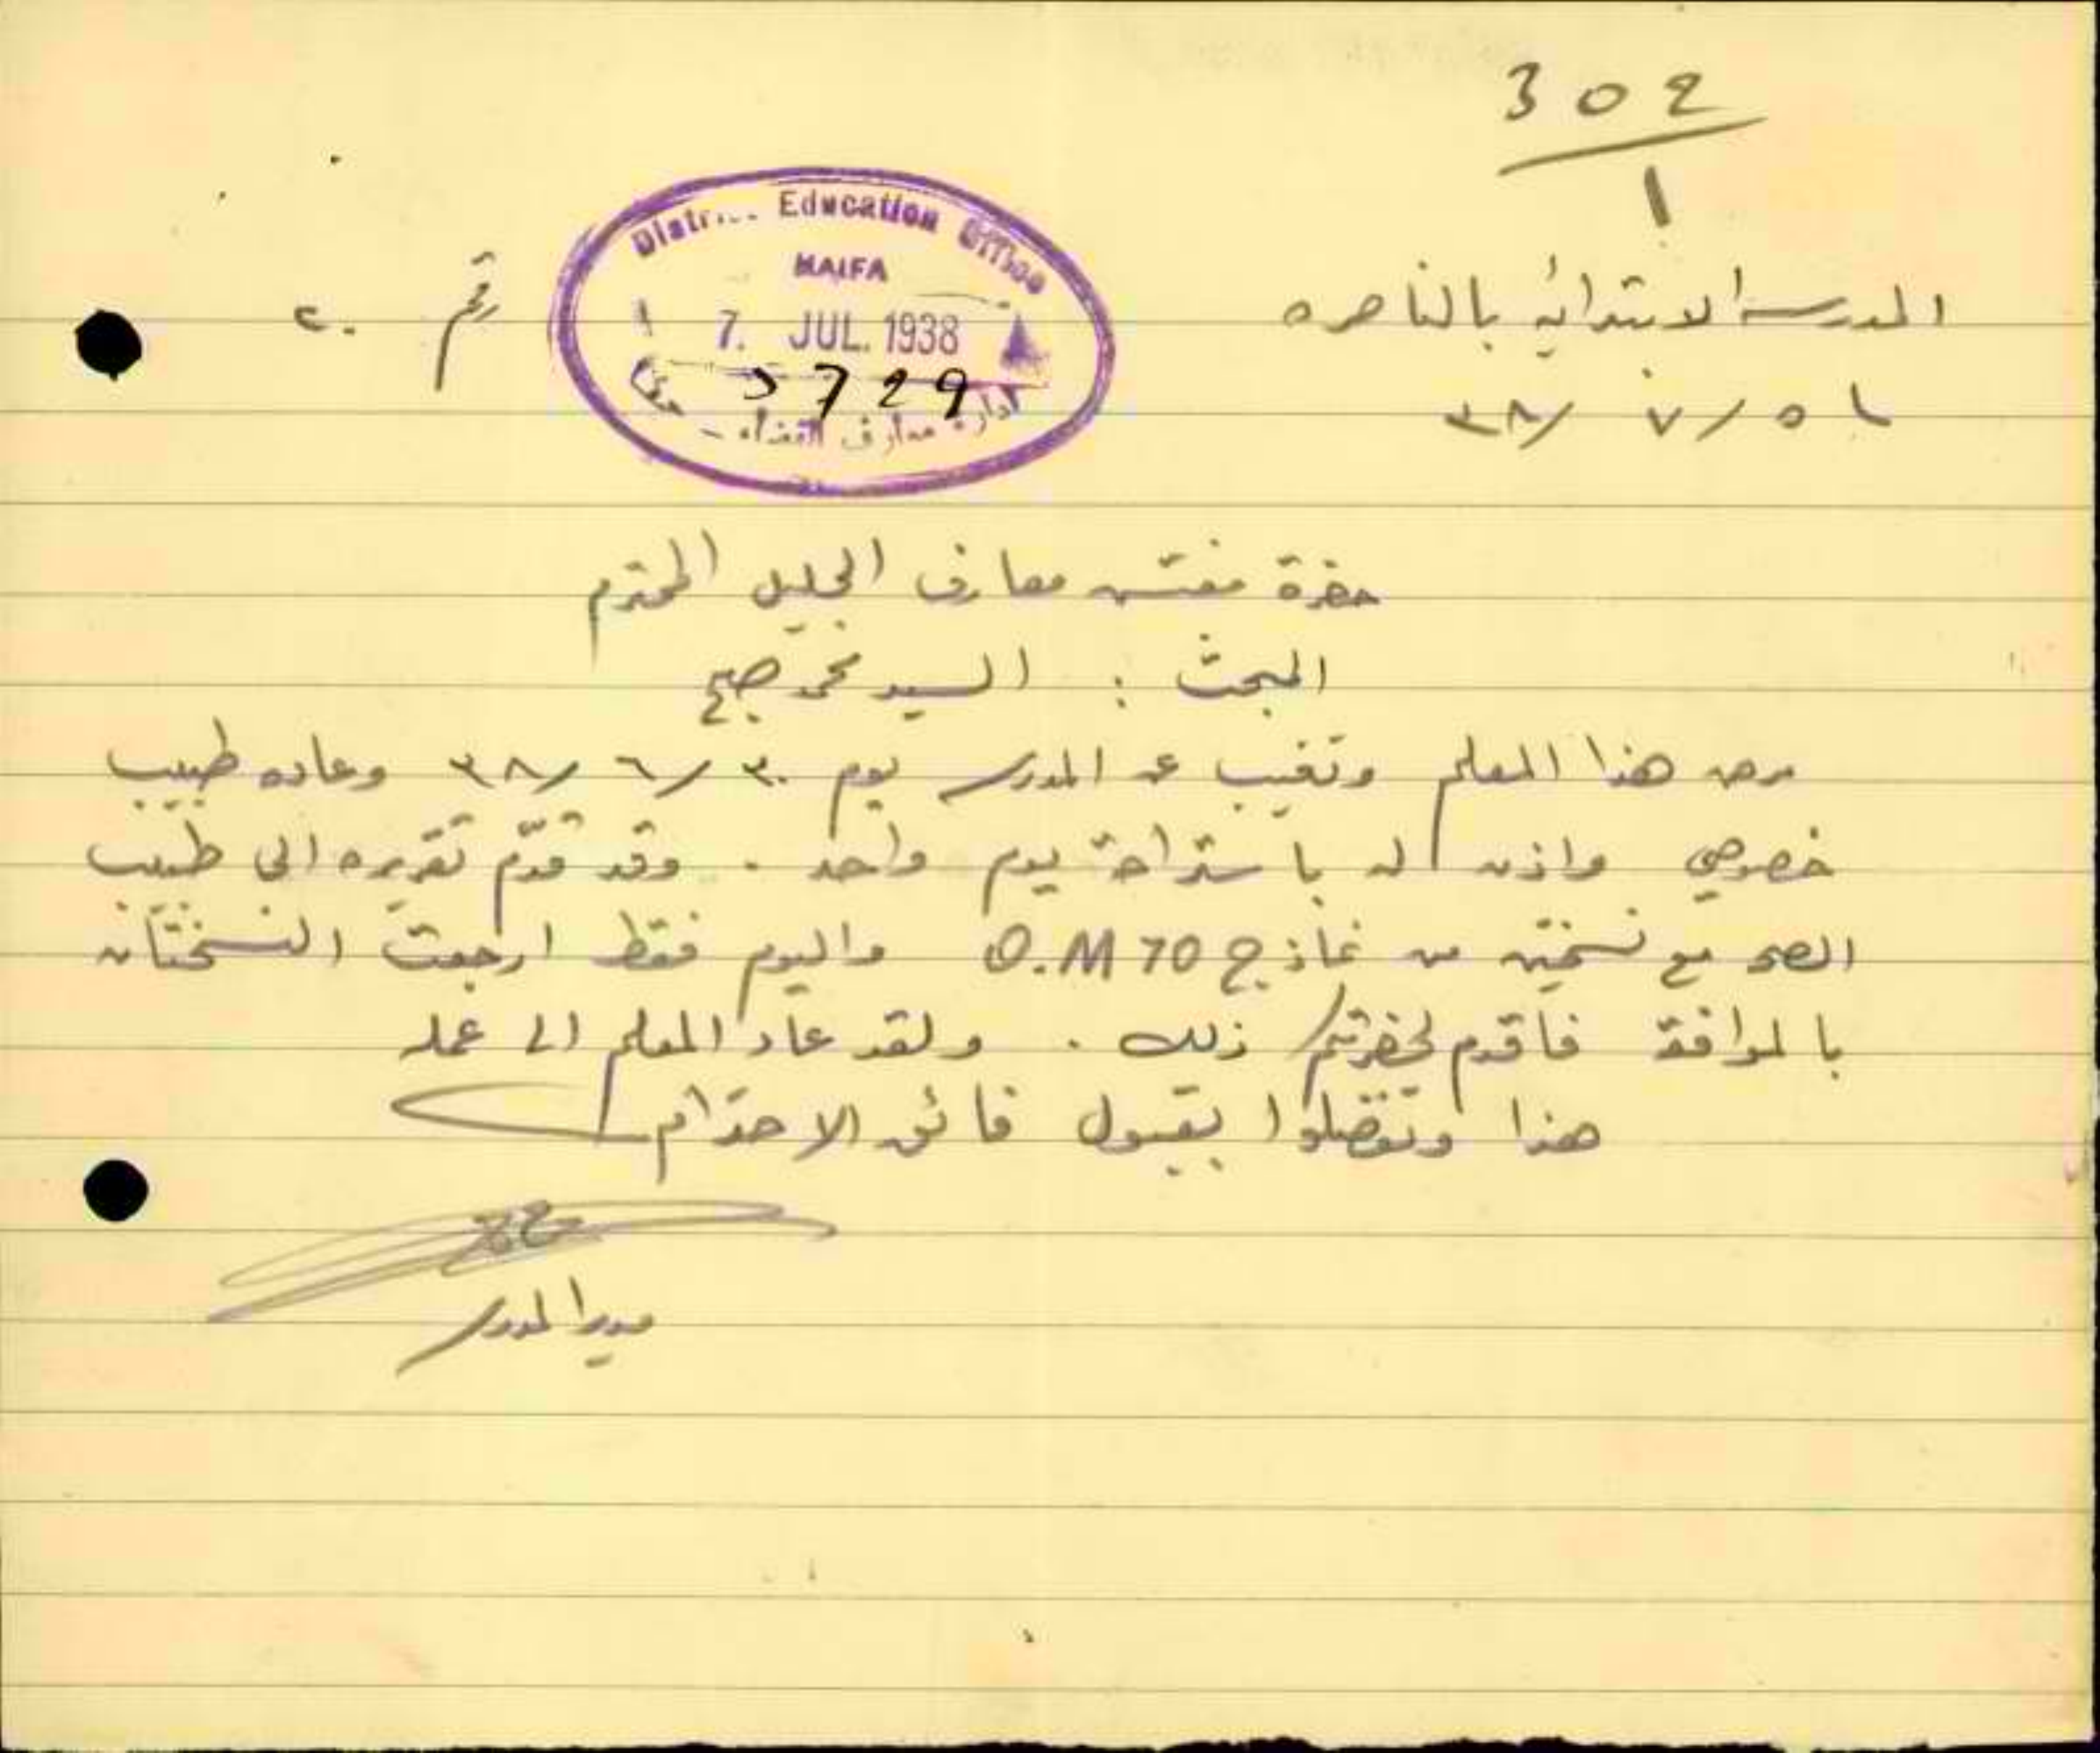 302
١
District Education Office
HAIFA
7. JUL. 1938
5729
ادارة معارف القضاء - حيفا
رقم ٢٠
المدرسة الابتدائية بالناصره
٥ / ٧ / ٣٨
حضرة مفتش معارف الجليل المحترم
المبحث : السيد محمد صبح
مرض هذا المعلم وتغيب عن المدرسة يوم ٣٠ / ٦ / ٣٨ وعاده طبيب
خصوصي واذن له باستراحة يوم واحد . وقد قدّم تقريره الى طبيب
الصحة مع نسختين من نماذج O.M 70 واليوم فقط ارجعت النسختان
بالموافقة فاقدم لحضرتكم ذلك . ولقد عاد المعلم الى عمله
هذا وتفضلوا بقبول فائق الاحترام
مدير المدرسة